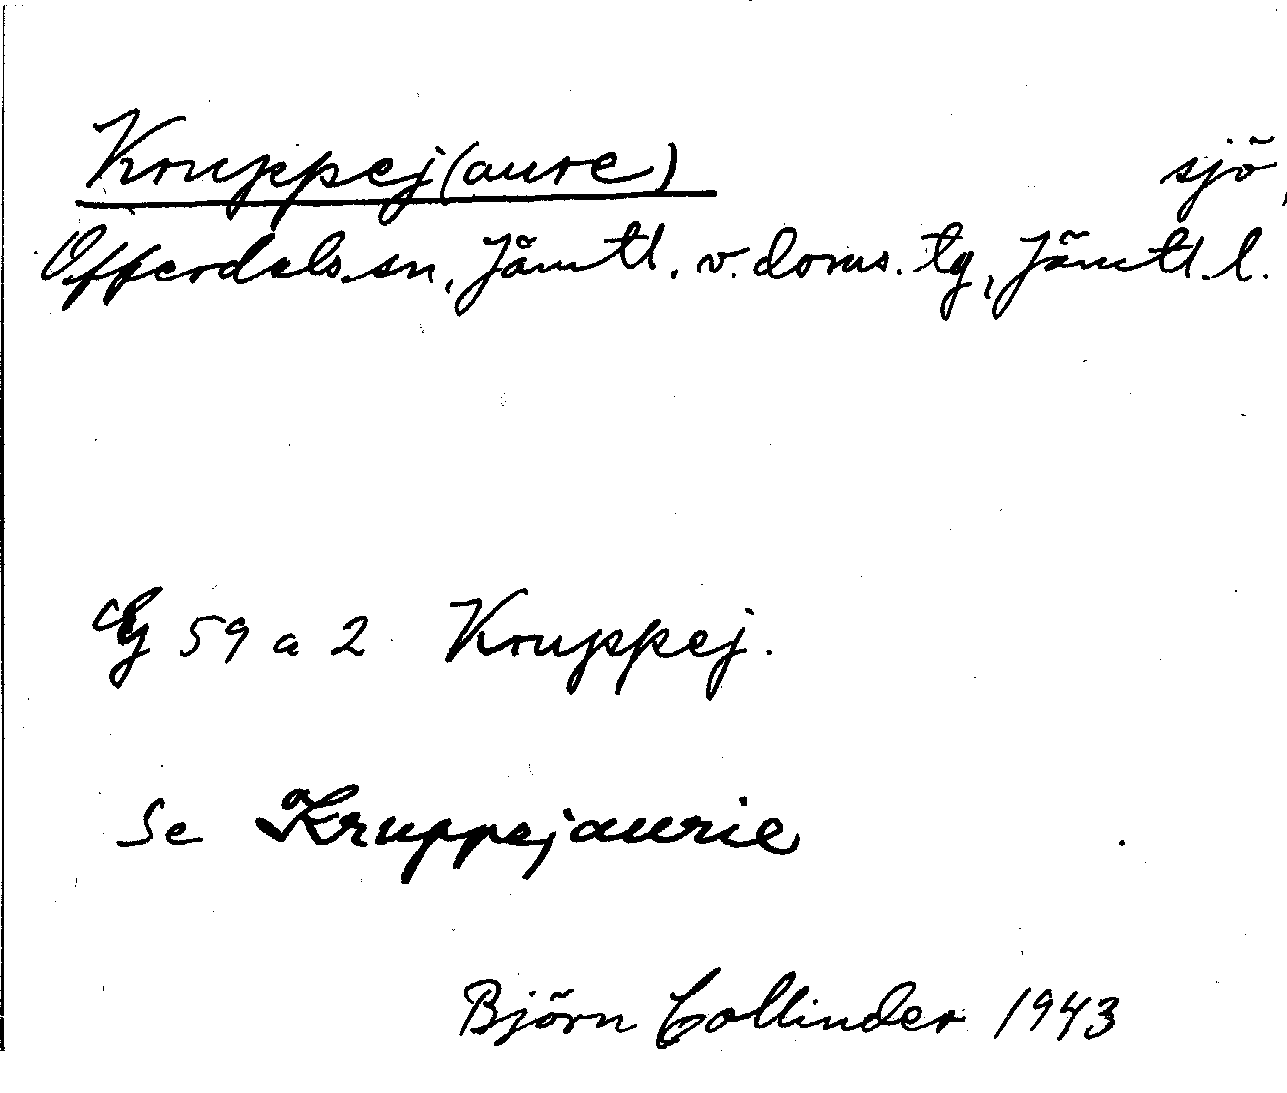 Kruppej(aure) sjö,
Offerdals sn, Jämtl. v. doms. tg, Jämtl. l.
59 a 2 Kruppej.
Se Kruppejaurie
Björn Collinder 1943